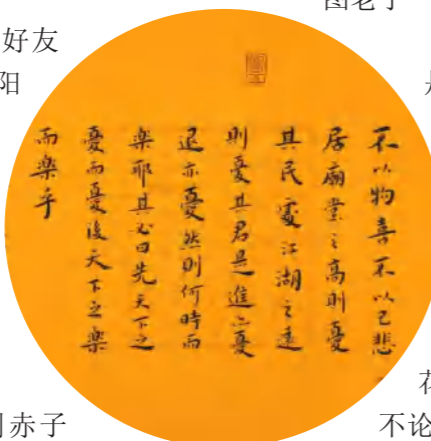 好友
阳
不以物喜不以己悲
居廟堂之高則憂
其民處江湖之遠
則憂其君是進亦憂
退亦憂然則何時而
樂耶其必曰先天下之
憂而憂後天下之樂
而樂乎
赤子
不论